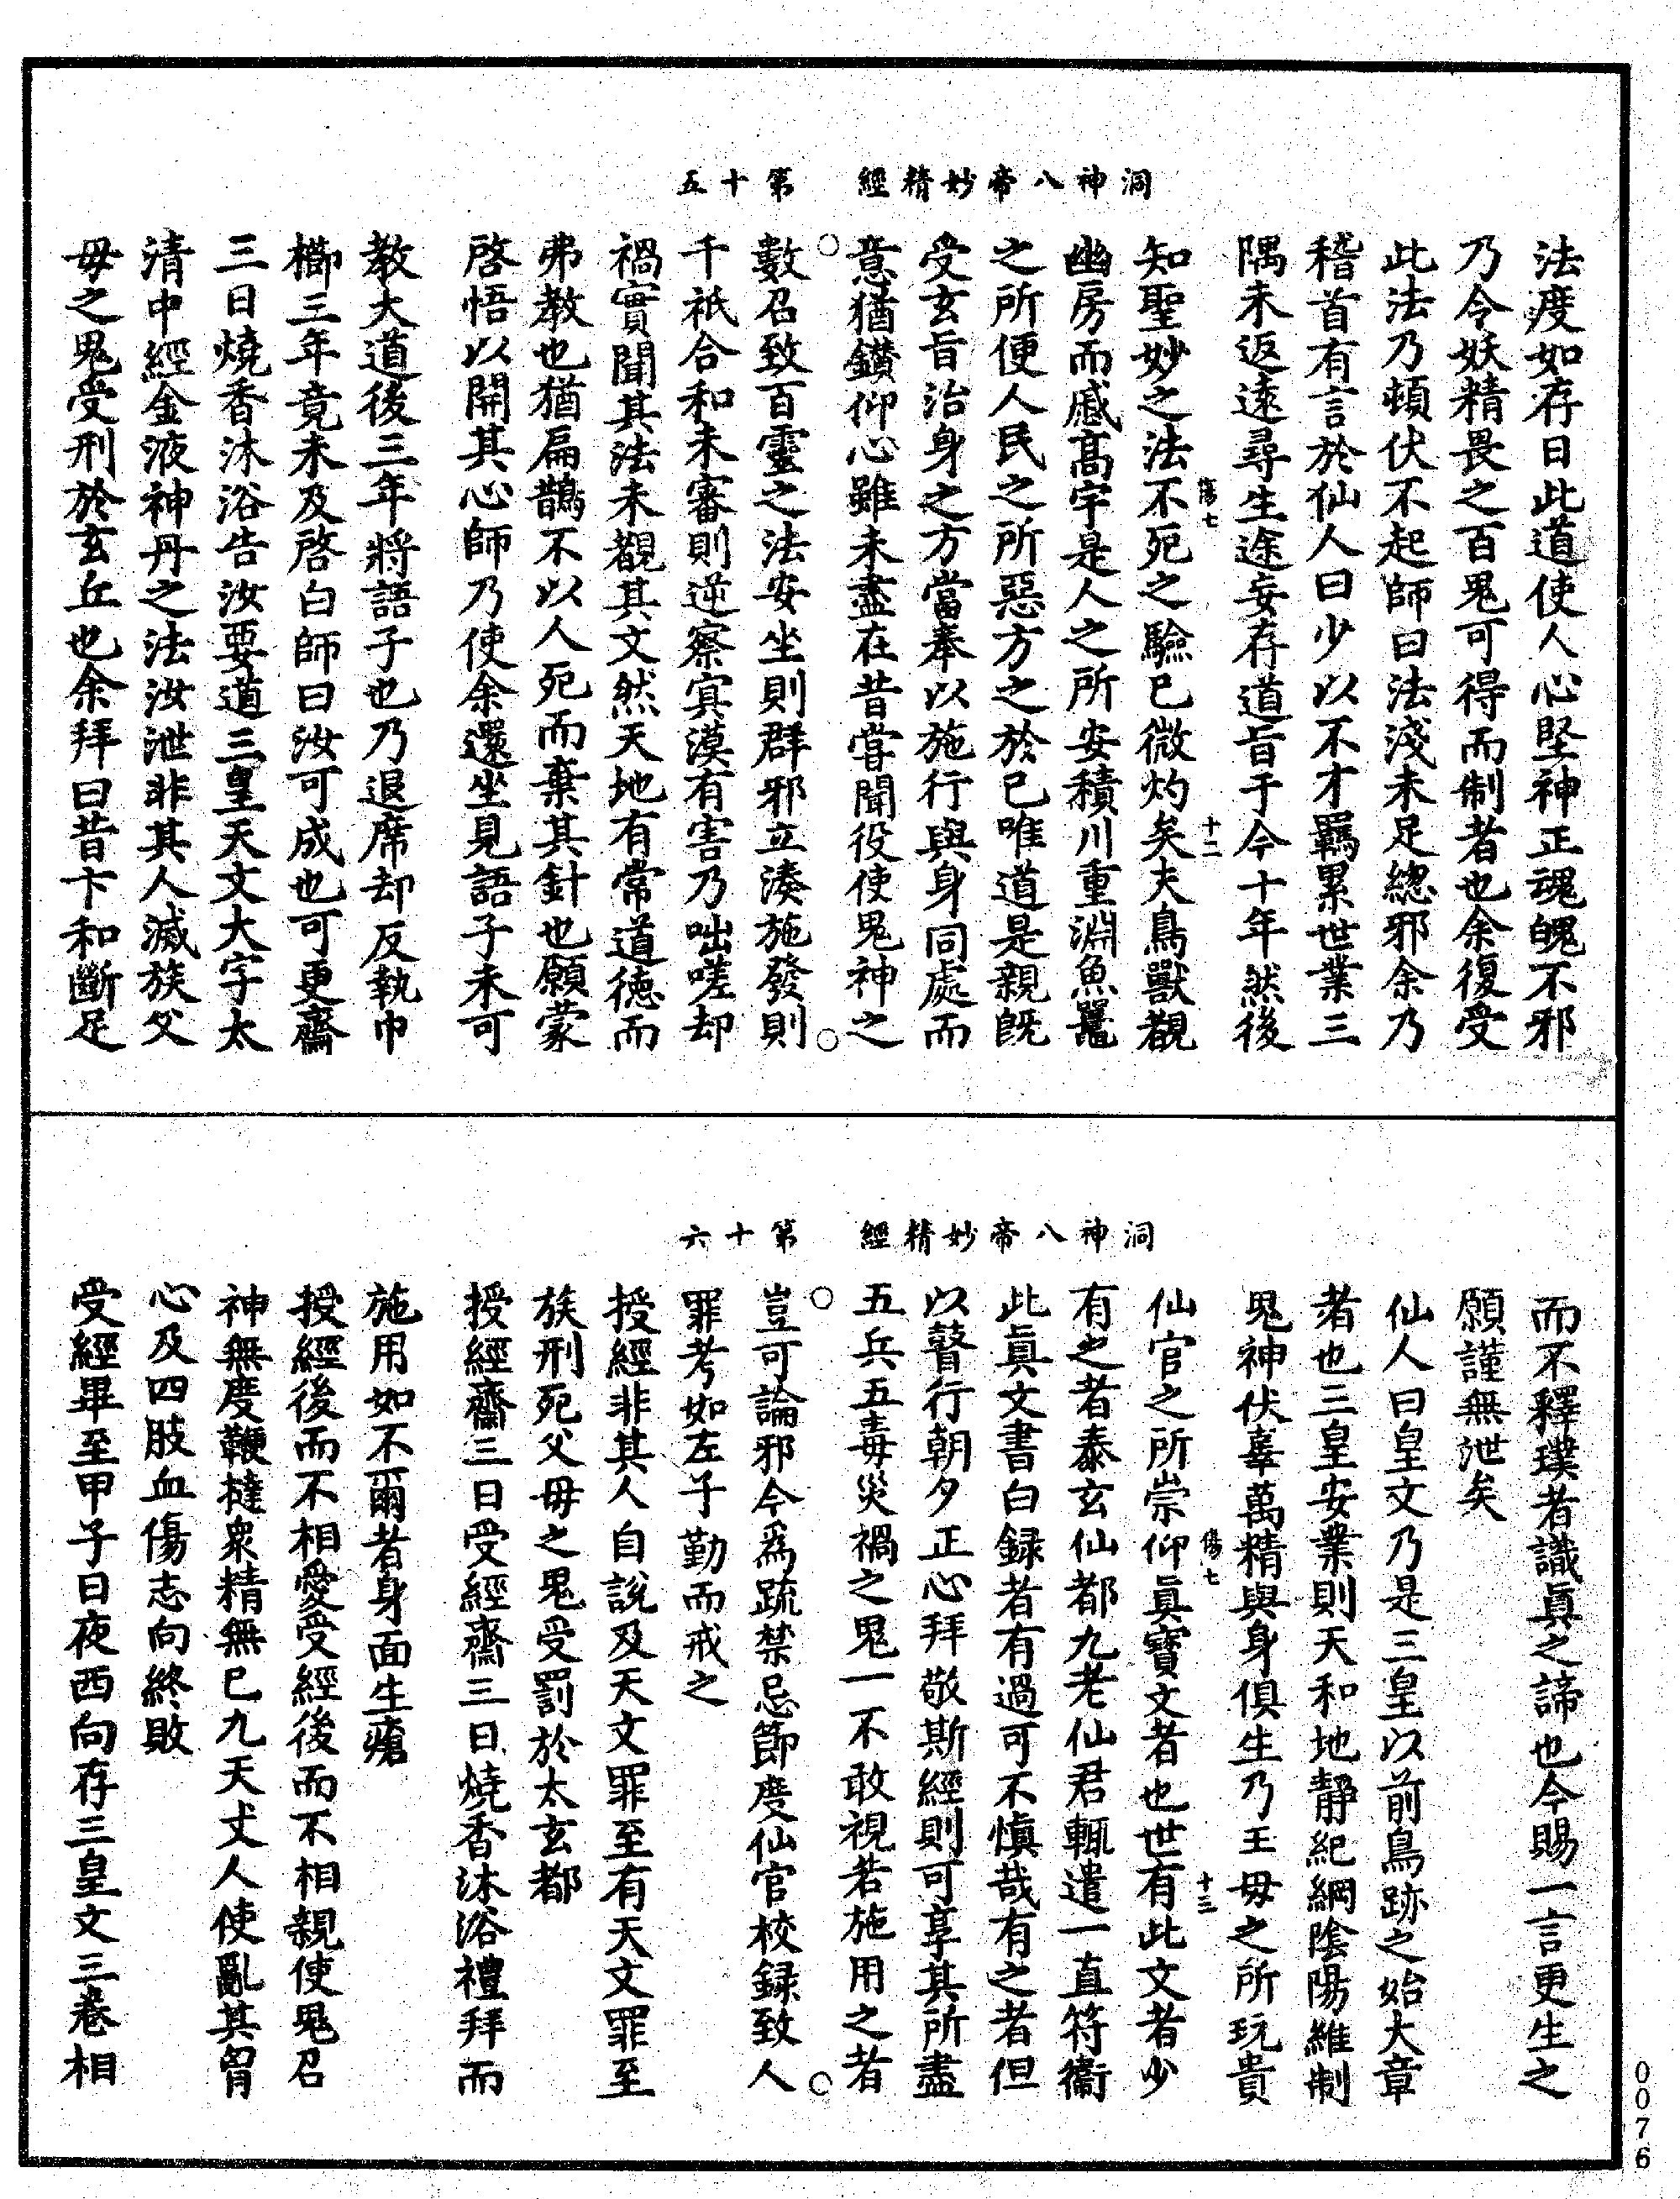 洞神八帝妙精經　第十五
法度如存日此道使人心堅神正魂魄不邪
乃令妖精畏之百鬼可得而制者也余復受
此法乃頓伏不起師曰法淺未足總邪余乃
稽首有言於仙人曰少以不才羈累世業三
隅未返遠尋生途妄存道旨于今十年然後
傷七　十二
知聖妙之法不死之驗已微灼矣夫鳥獸覩
幽房而慼高宇是人之所安積川重淵魚鼈
之所便人民之所惡方之於已唯道是親旣
受玄旨治身之方當奉以施行與身同處而
意猶鑚仰心雖未盡在昔嘗聞役使鬼神之
數召致百靈之法安坐則群邪立湊施發則
千祇合和未審則逆察寘漠有害乃咄嗟却
禍實聞其法未覩其文然天地有常道德而
弗教也猶扁鵲不以人死而棄其針也願蒙
啓悟以開其心師乃使余還坐見語子未可
教大道後三年將語子也乃退席却反執巾
櫛三年竟未及啓白師曰汝可成也可更齋
三日燒香沐浴告汝要道三皇天文大字太
清中經金液神丹之法汝泄非其人滅族父
毋之鬼受刑於玄丘也余拜曰昔卞和斷足
洞神八帝妙精經　第十六
而不釋璞者識眞之諦也今賜一言更生之
願謹無泄矣
仙人曰皇文乃是三皇以前鳥跡之始大章
者也三皇安業則天和地靜紀綱陰陽維制
鬼神伏辜萬精與身俱生乃王毋之所玩貴
傷七　十三
仙官之所崇仰眞寶文者也世有此文者少
有之者泰玄仙都九老仙君輒遣一直符衛
此眞文書白録者有過可不愼哉有之者但
以瞽行朝夕正心拜敬斯經則可享其所盡
五兵五毒災禍之鬼一不敢視若施用之者
豈可論邪今爲疏禁忌節度仙官校録致人
罪考如左子勤而戒之
授經非其人自說及天文罪至有天文罪至
族刑死父毋之鬼受罰於太玄都
授經齋三日受經齋三日燒香沐浴禮拜而
施用如不爾者身面生瘡
授經後而不相愛受經後而不相親使鬼召
神無度鞭撻衆精無已九天丈人使亂其胷
心及四肢血傷志向終敗
受經畢至甲子日夜西向存三皇文三卷相
0076